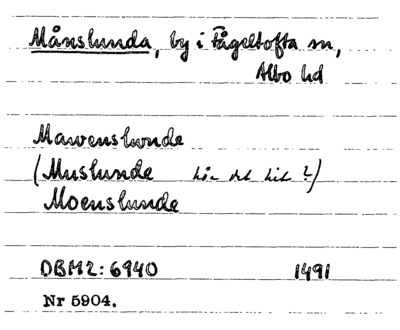 Månslunda, by i Fågeltofta sn,
Albo hd
Mawenslwnde
(Muslunde hör det hit?)
Moenslunde
DBM2:6940 1491
Nr 5904.